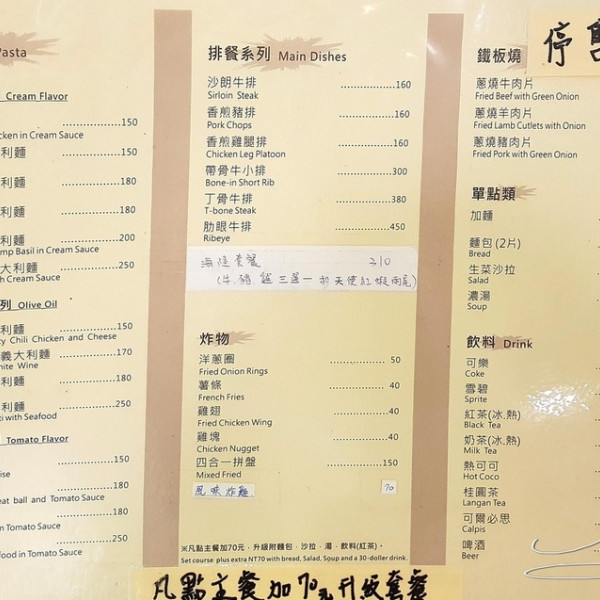 Pasta
Cream Flavor
150
icken in Cream Sauce
利麵
150
利麵
180
利麵
180
利麵
200
mp Basil in Cream Sauce
大利麵
250
h Cream Sauce
列 Olive Oil
利麵
150
y Chili Chicken and Cheese
義大利麵
170
hite Wine
利麵
180
利麵
250
ti with Seafood
Tomato Flavor
150
180
eat ball and Tomato Sauce
180
n Tomato Sauce
250
food in Tomato Sauce
排餐系列 Main Dishes
沙朗牛排 160
Sirloin Steak
香煎豬排 160
Pork Chops
香煎雞腿排 160
Chicken Leg Platoon
帶骨牛小排 300
Bone-in Short Rib
丁骨牛排 380
T-bone Steak
肋眼牛排 450
Ribeye
海陸套餐 310
炸物
洋蔥圈 50
Fried Onion Rings
薯條 40
French Fries
雞翅 40
Fried Chicken Wing
雞塊 40
Chicken Nugget
四合一拼盤 150
Mixed Fried
70
※凡點主餐加70元,升級附麵包、沙拉、湯、飲料(紅茶)。
Set course plus extra NT70 with bread, Salad, Soup and a 30-doller drink.
凡點主餐加70元升級套餐
鐵板燒
停售
蔥燒牛肉片
Fried Beef with Green Onion
蔥燒羊肉片
Fried Lamb Cutlets with Onion
蔥燒豬肉片
Fried Pork with Green Onion
單點類
加麵
麵包(2片)
Bread
生菜沙拉
Salad
濃湯
Soup
飲料 Drink
可樂
Coke
雪碧
Sprite
紅茶(冰.熱)
Black Tea
奶茶(冰.熱)
Milk Tea
熱可可
Hot Coco
桂圓茶
Langan Tea
可爾必思
Calpis
啤酒
Beer